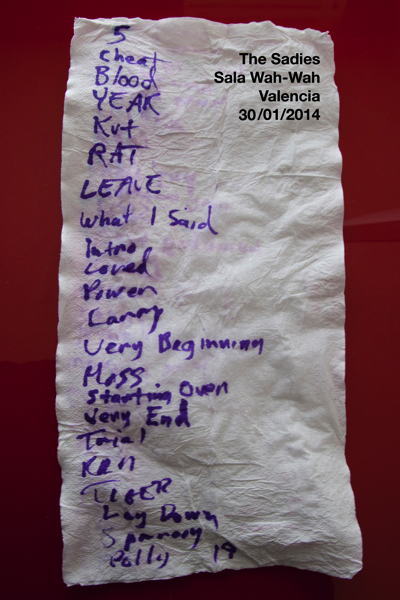 The Sadies
Sala Wah-Wah
Valencia
30/01/2014
5
Cheat
Blood
YEAR
Kut
RAT
LEAVE
What I Said
Intro
Loved
Power
Larry
Very Beginning
Moss
Starting Over
Very End
Trial
TIGER
Lay Down
Polly 19